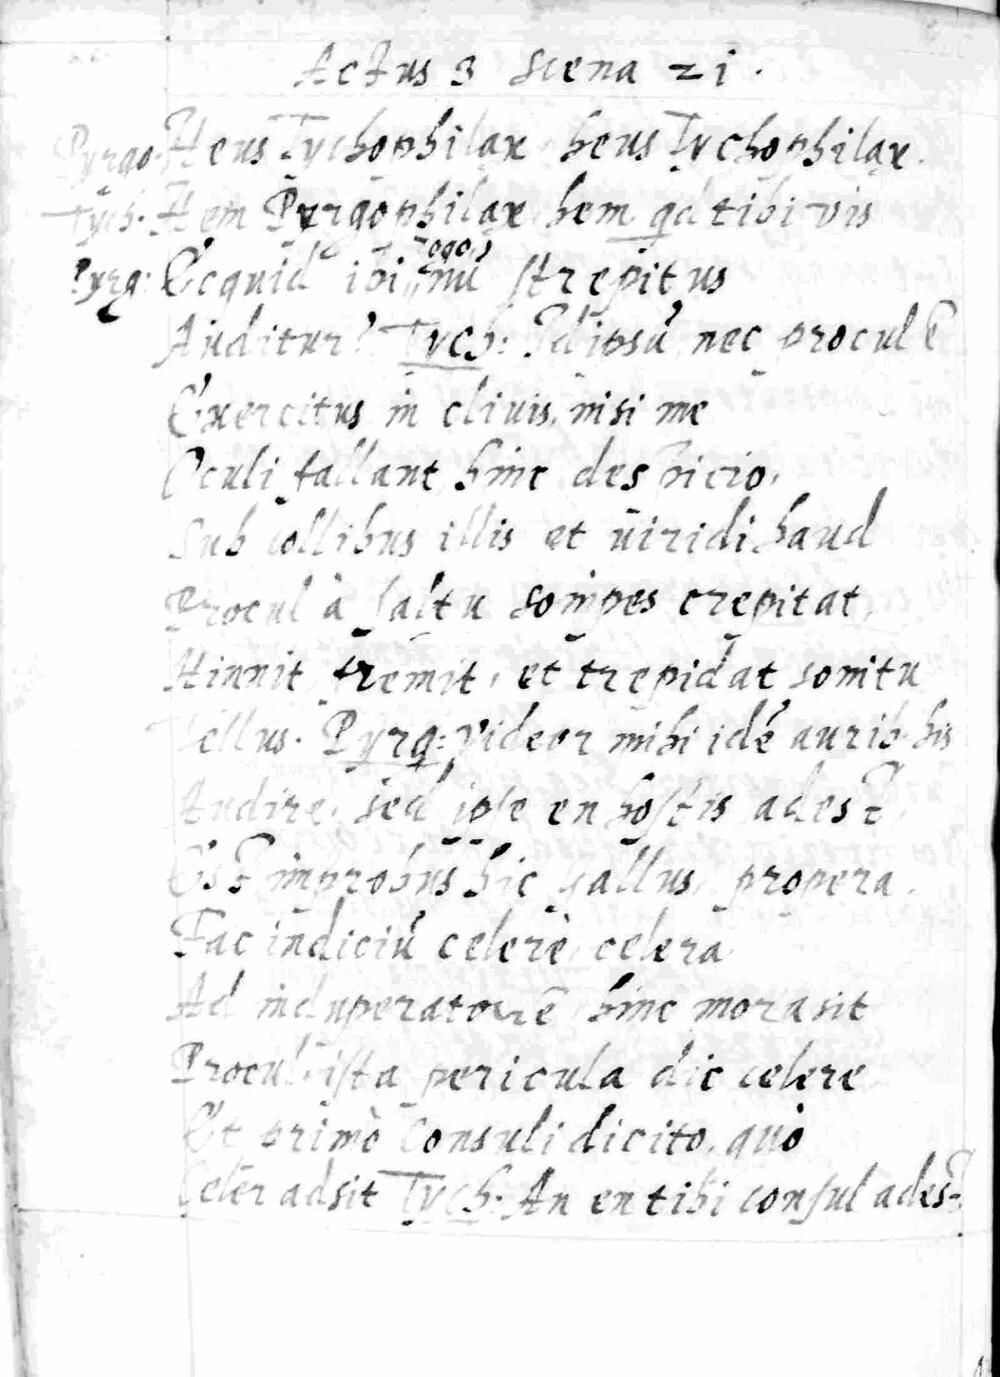 Actus 3 Scena 21.
Pyrgo. Heus Tychophilax, heus Tychophilax.
Tych. Hem Pyrgophilax hem qd tibi vis
Pyrg: Ecquid ibi, rogo, nū strepitus
Auditur? Tych: Id ipsū nec procul ē
Exercitus in clivis, nisi me
Oculi fallant hinc despicio,
Sub collibus illis et viridi haud
Procul à saltu sonipes crepitat,
Hinnit, fremit, et trepidat sonitu
Tellus. Pyrg: Videor mihi idē aurib. his
Audire, sed ipse en hostis adest,
Est improbus hic gallus, propera.
Fac indiciū celerè, celera
Ad induperatorē hinc mora sit
Procul, ista pericula dic celere
Et primò Consuli dicito, quò
Celer adsit Tych. An en tibi consul adest